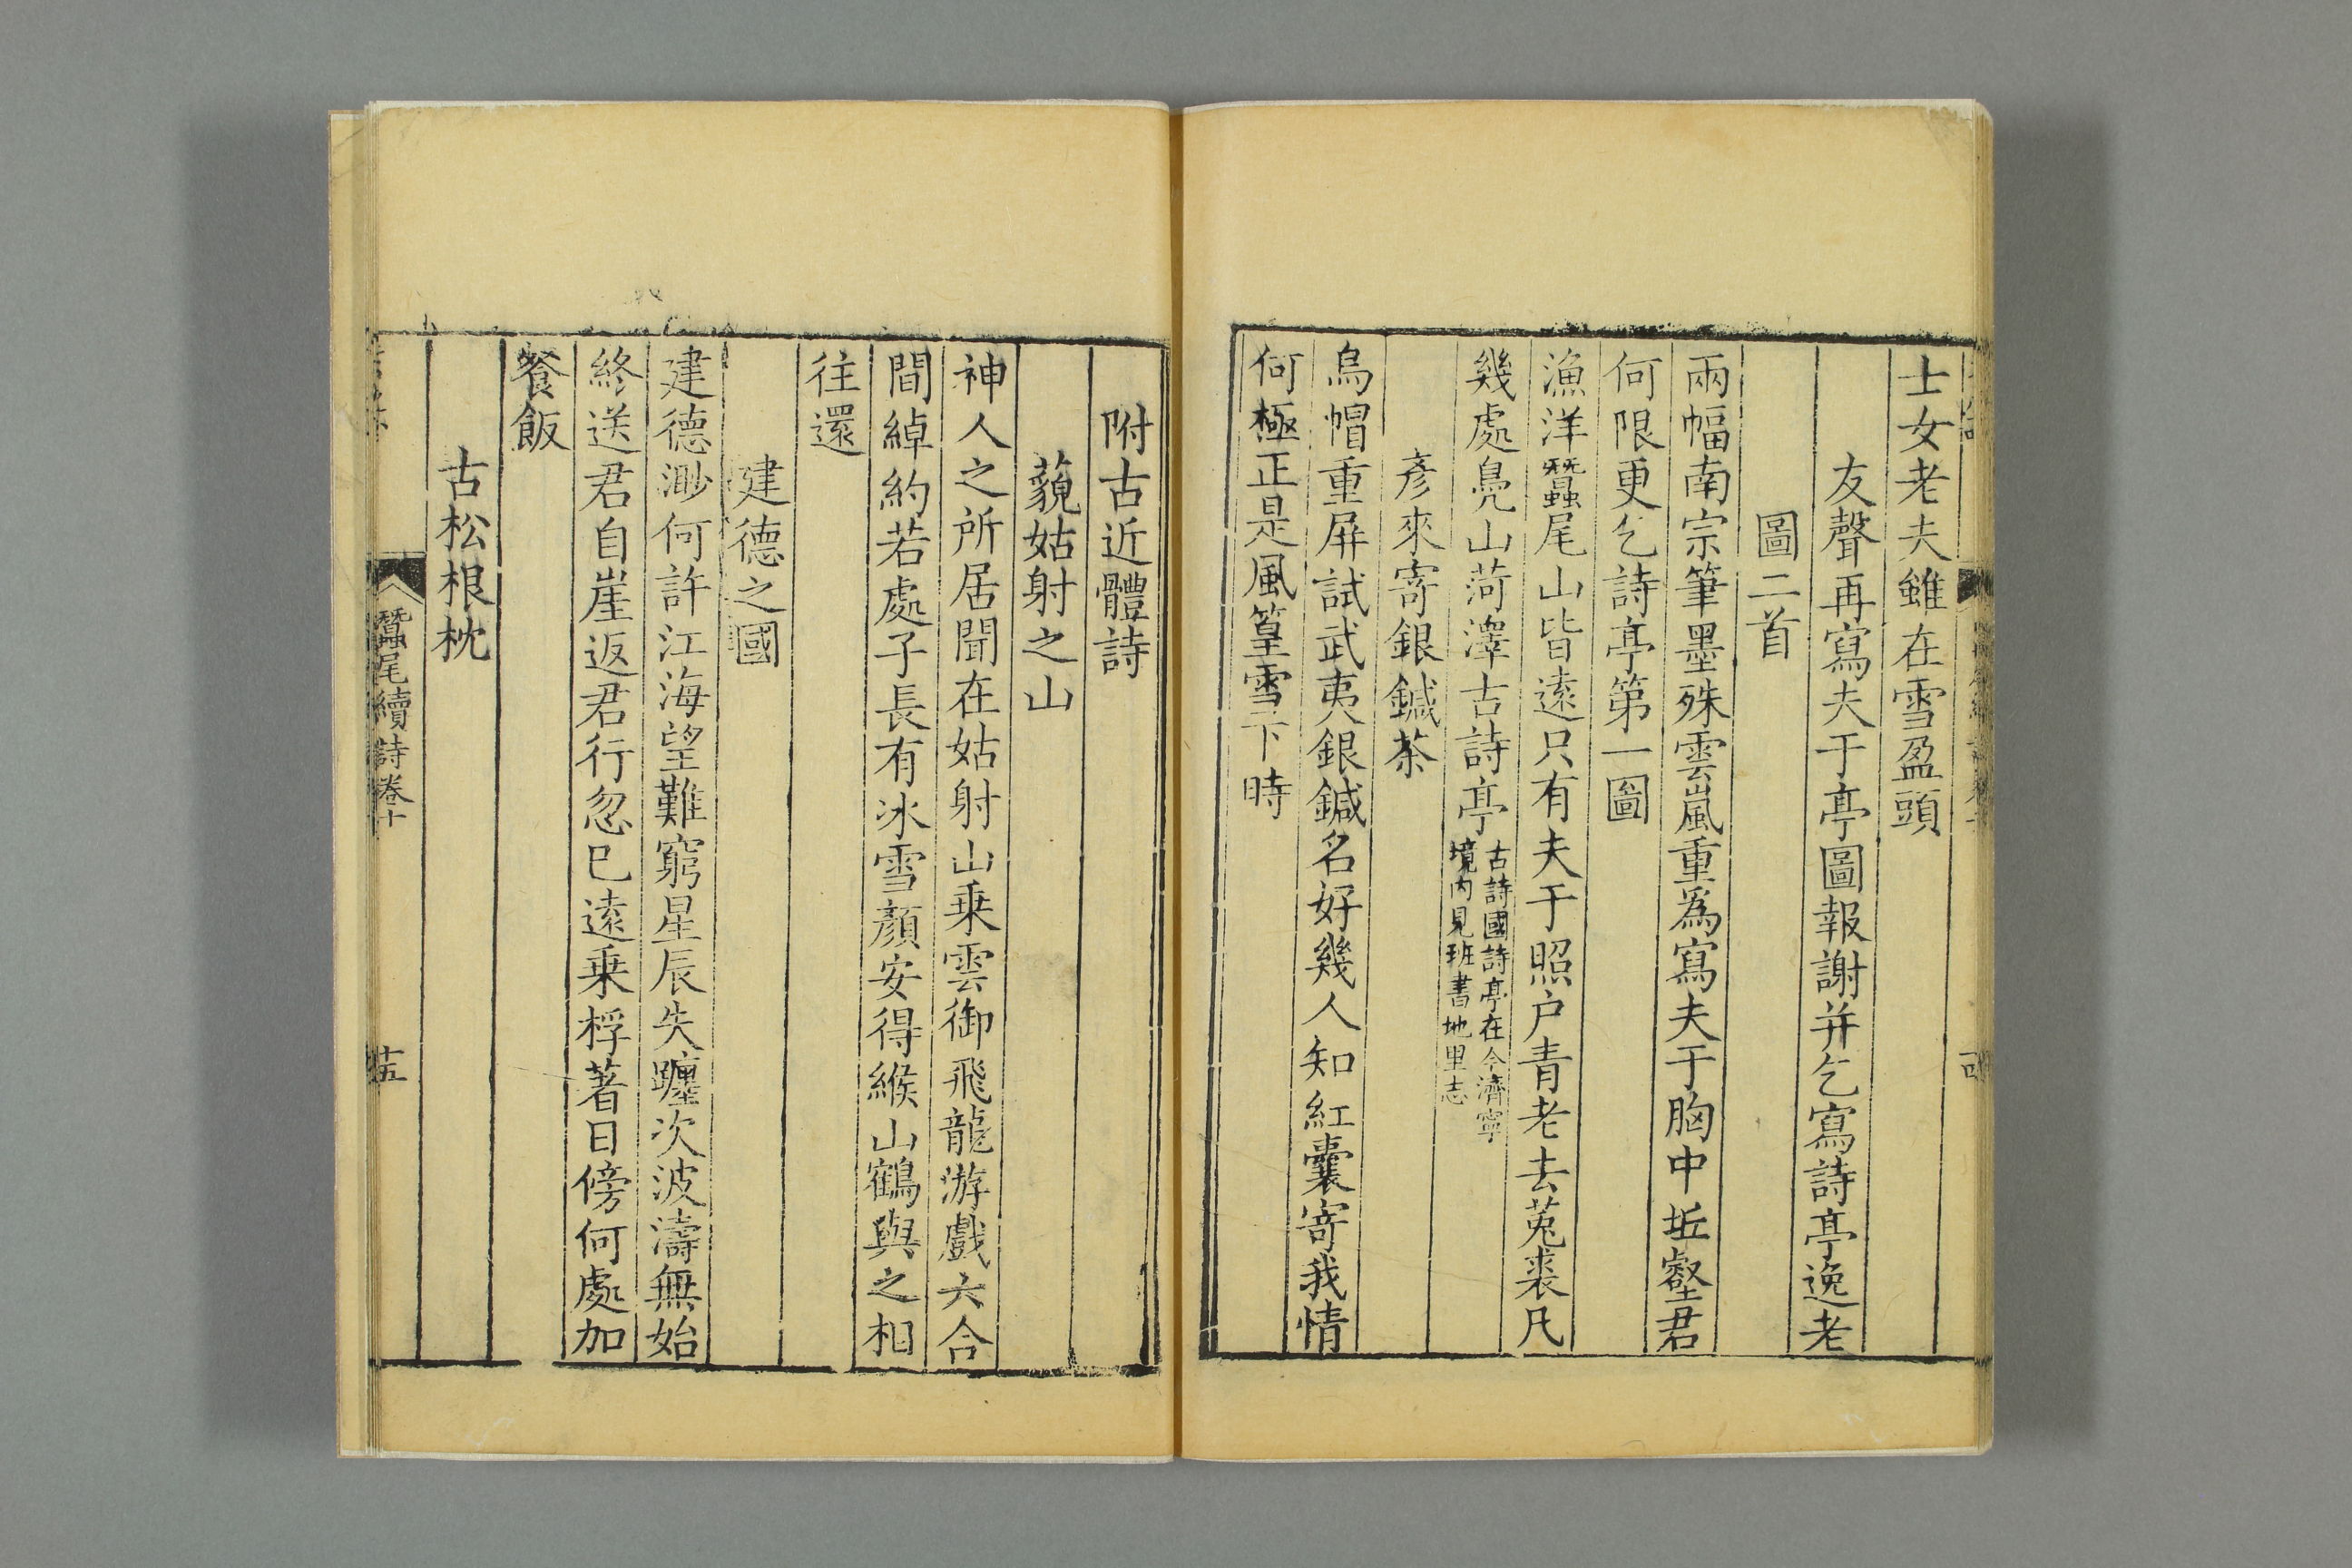 士女老夫雖在雪盈頭
友聲再寫夫于亭圖報謝并乞寫詩亭逸老
圖二首
兩幅南宗筆墨殊雲嵐重爲寫夫于胸中坵壑君
何限更乞詩亭第一圖
漁洋蠶尾山皆遠只有夫于照户青老去菟裘凡
幾處鳧山菏澤古詩亭
古詩國詩亭在今濟寧
境内見班書地里志
彥來寄銀鍼茶
烏帽重屏試武夷銀鍼名好幾人知紅囊寄我情
何極正是風篁雪下時
附古近體詩
藐姑射之山
神人之所居聞在姑射山乗雲御飛龍游戲六合
間綽約若處子長有冰雪顏安得緱山鶴與之相
往還
建德之國
建德渺何許江海望難窮星辰失躔次波濤無始
終送君自崖返君行忽已遠乗桴著日傍何處加
餐飯
古松根枕
蠶尾續詩卷十
十五